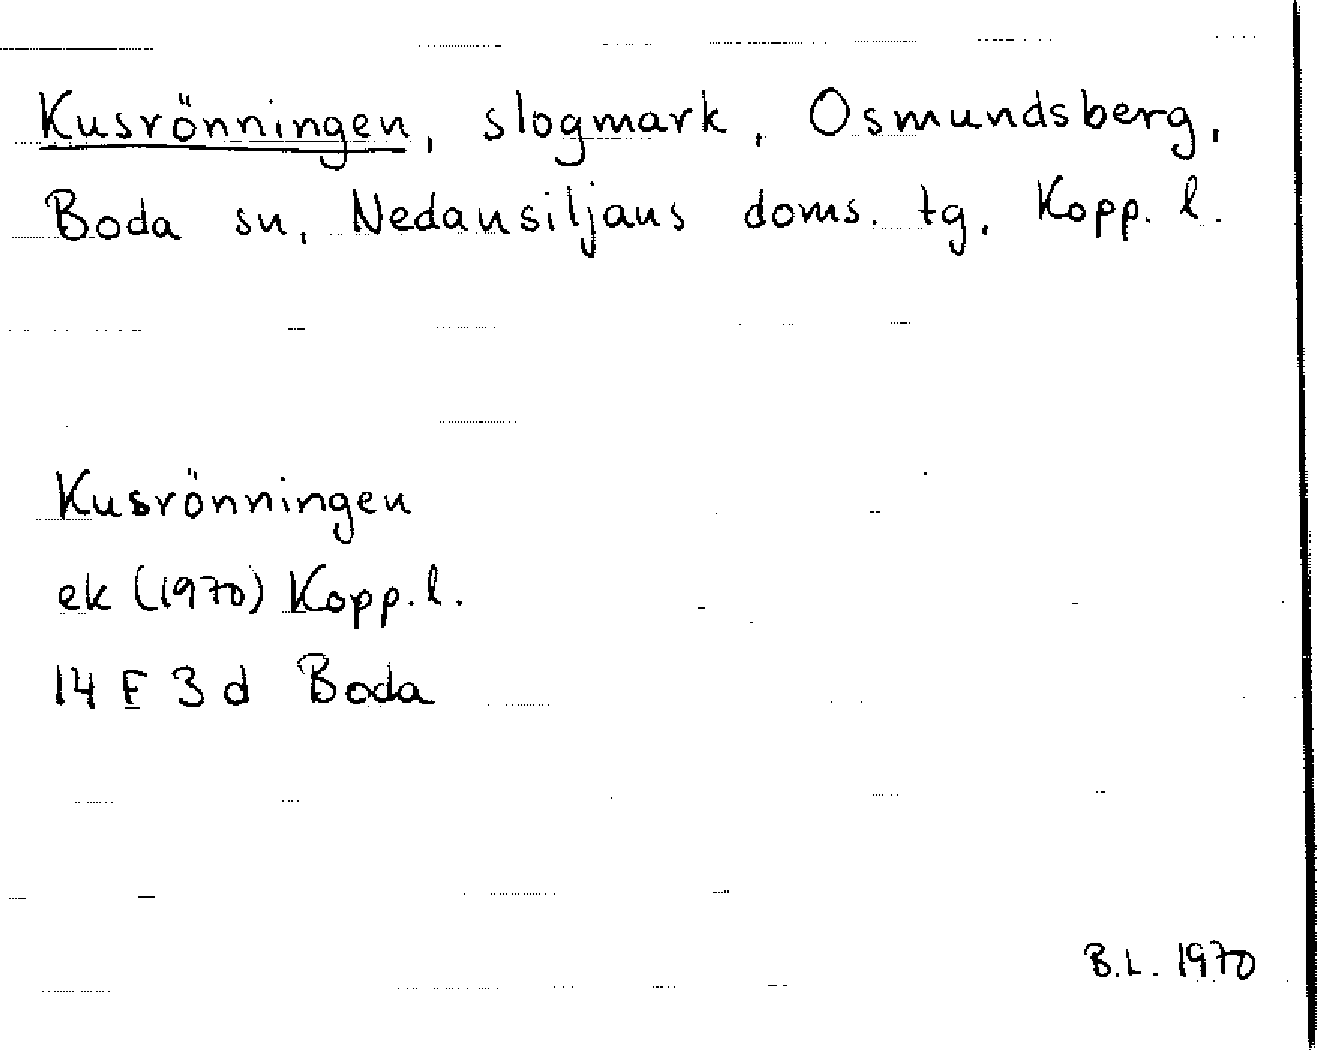 Kusrönningen, slogmark, Osmundsberg,
Boda sn, Nedansiljans doms. tg, Kopp. l.
Kusrönningen
ek (1970) Kopp. l.
14 F 3 d Boda
B.L. 1970